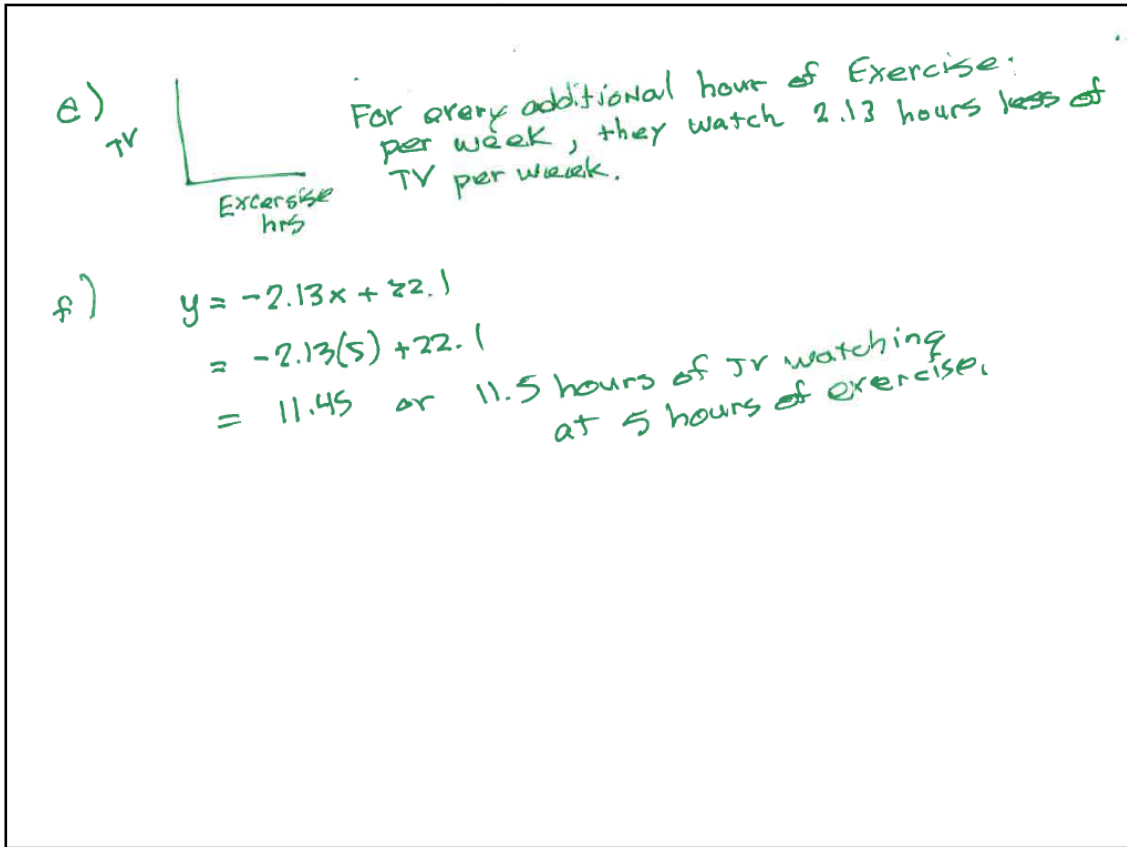 e)
TV
Excersise
hrs
For every additional hour of Exercise.
per week, they watch 2.13 hours less of
TV per week.
f) y = -2.13x + 22.1
= -2.13(5) + 22.1
= 11.45 or 11.5 hours of TV watching
at 5 hours of exercise.